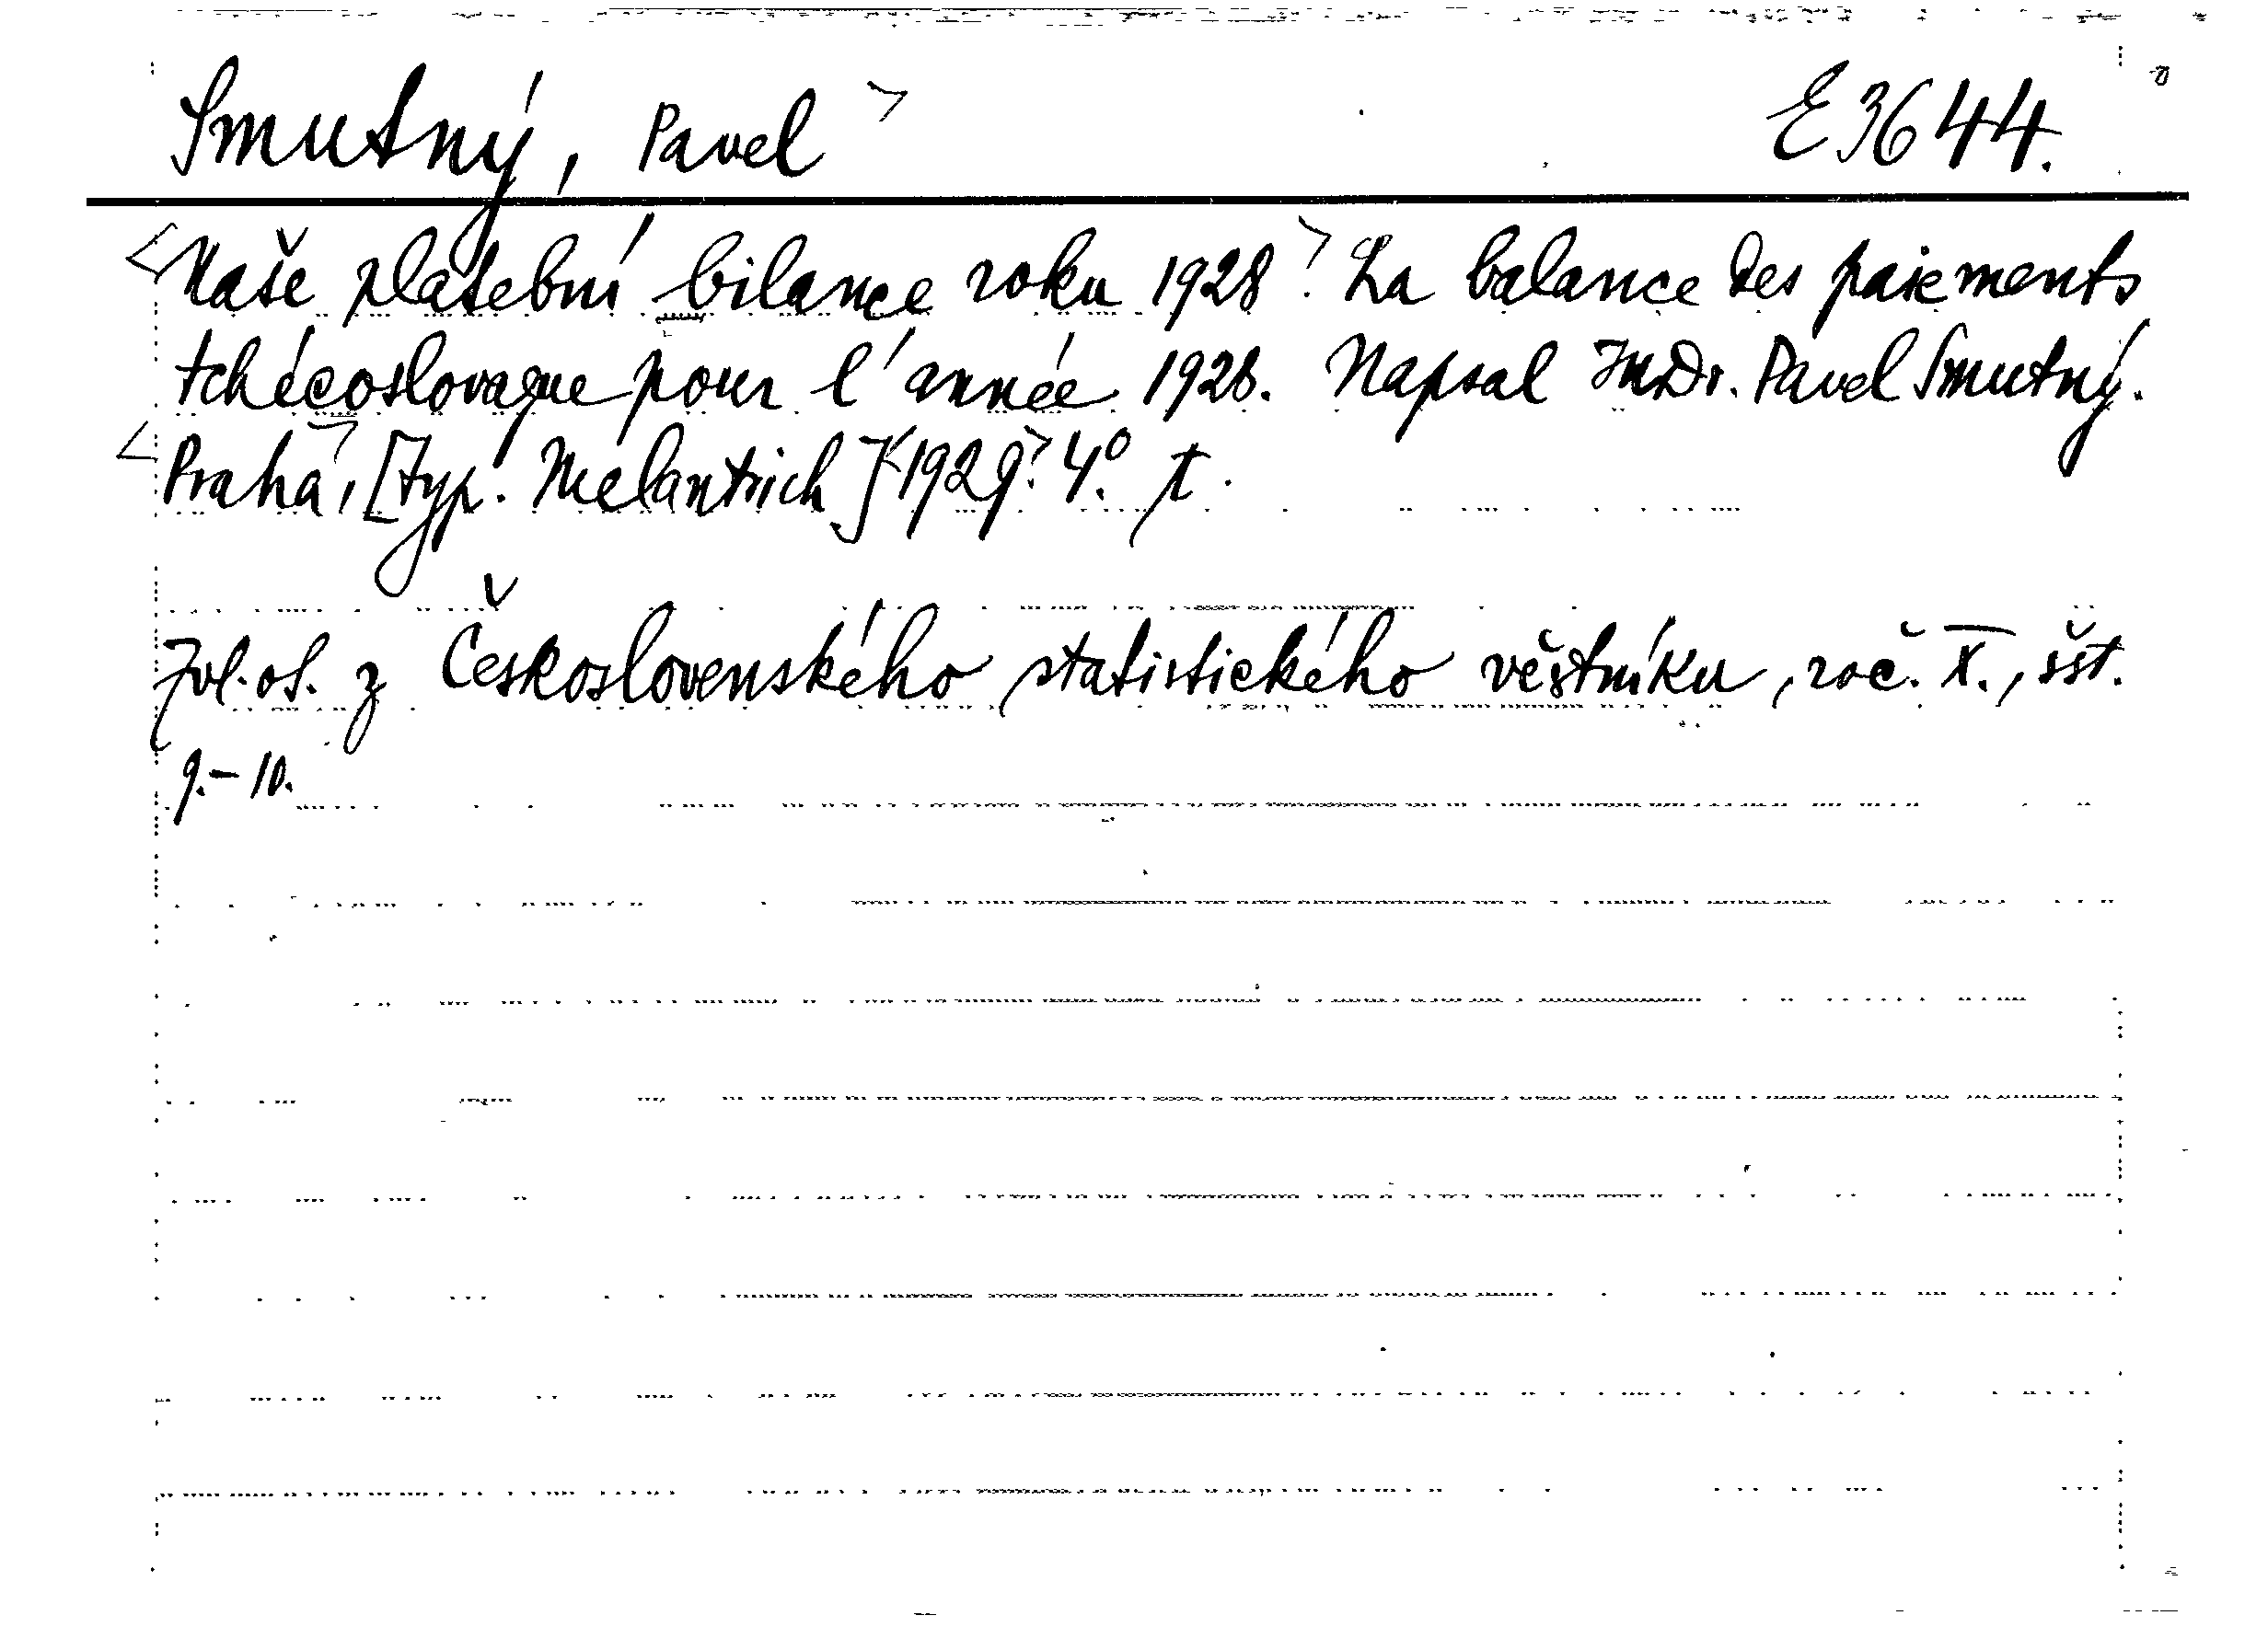 Smutný, Pavel > E 3644.
<Naše platební bilance roku 1928>. La balance des paiements
tchécoslovaque pour l'année 1928. Napsal JUDr. Pavel Smutný.
<Praha>, [typ. Melantrich] <1929>. 4°. t.
Zvl. ot. z Československého statistického věstníku, roč. X., sšt.
9.-10.